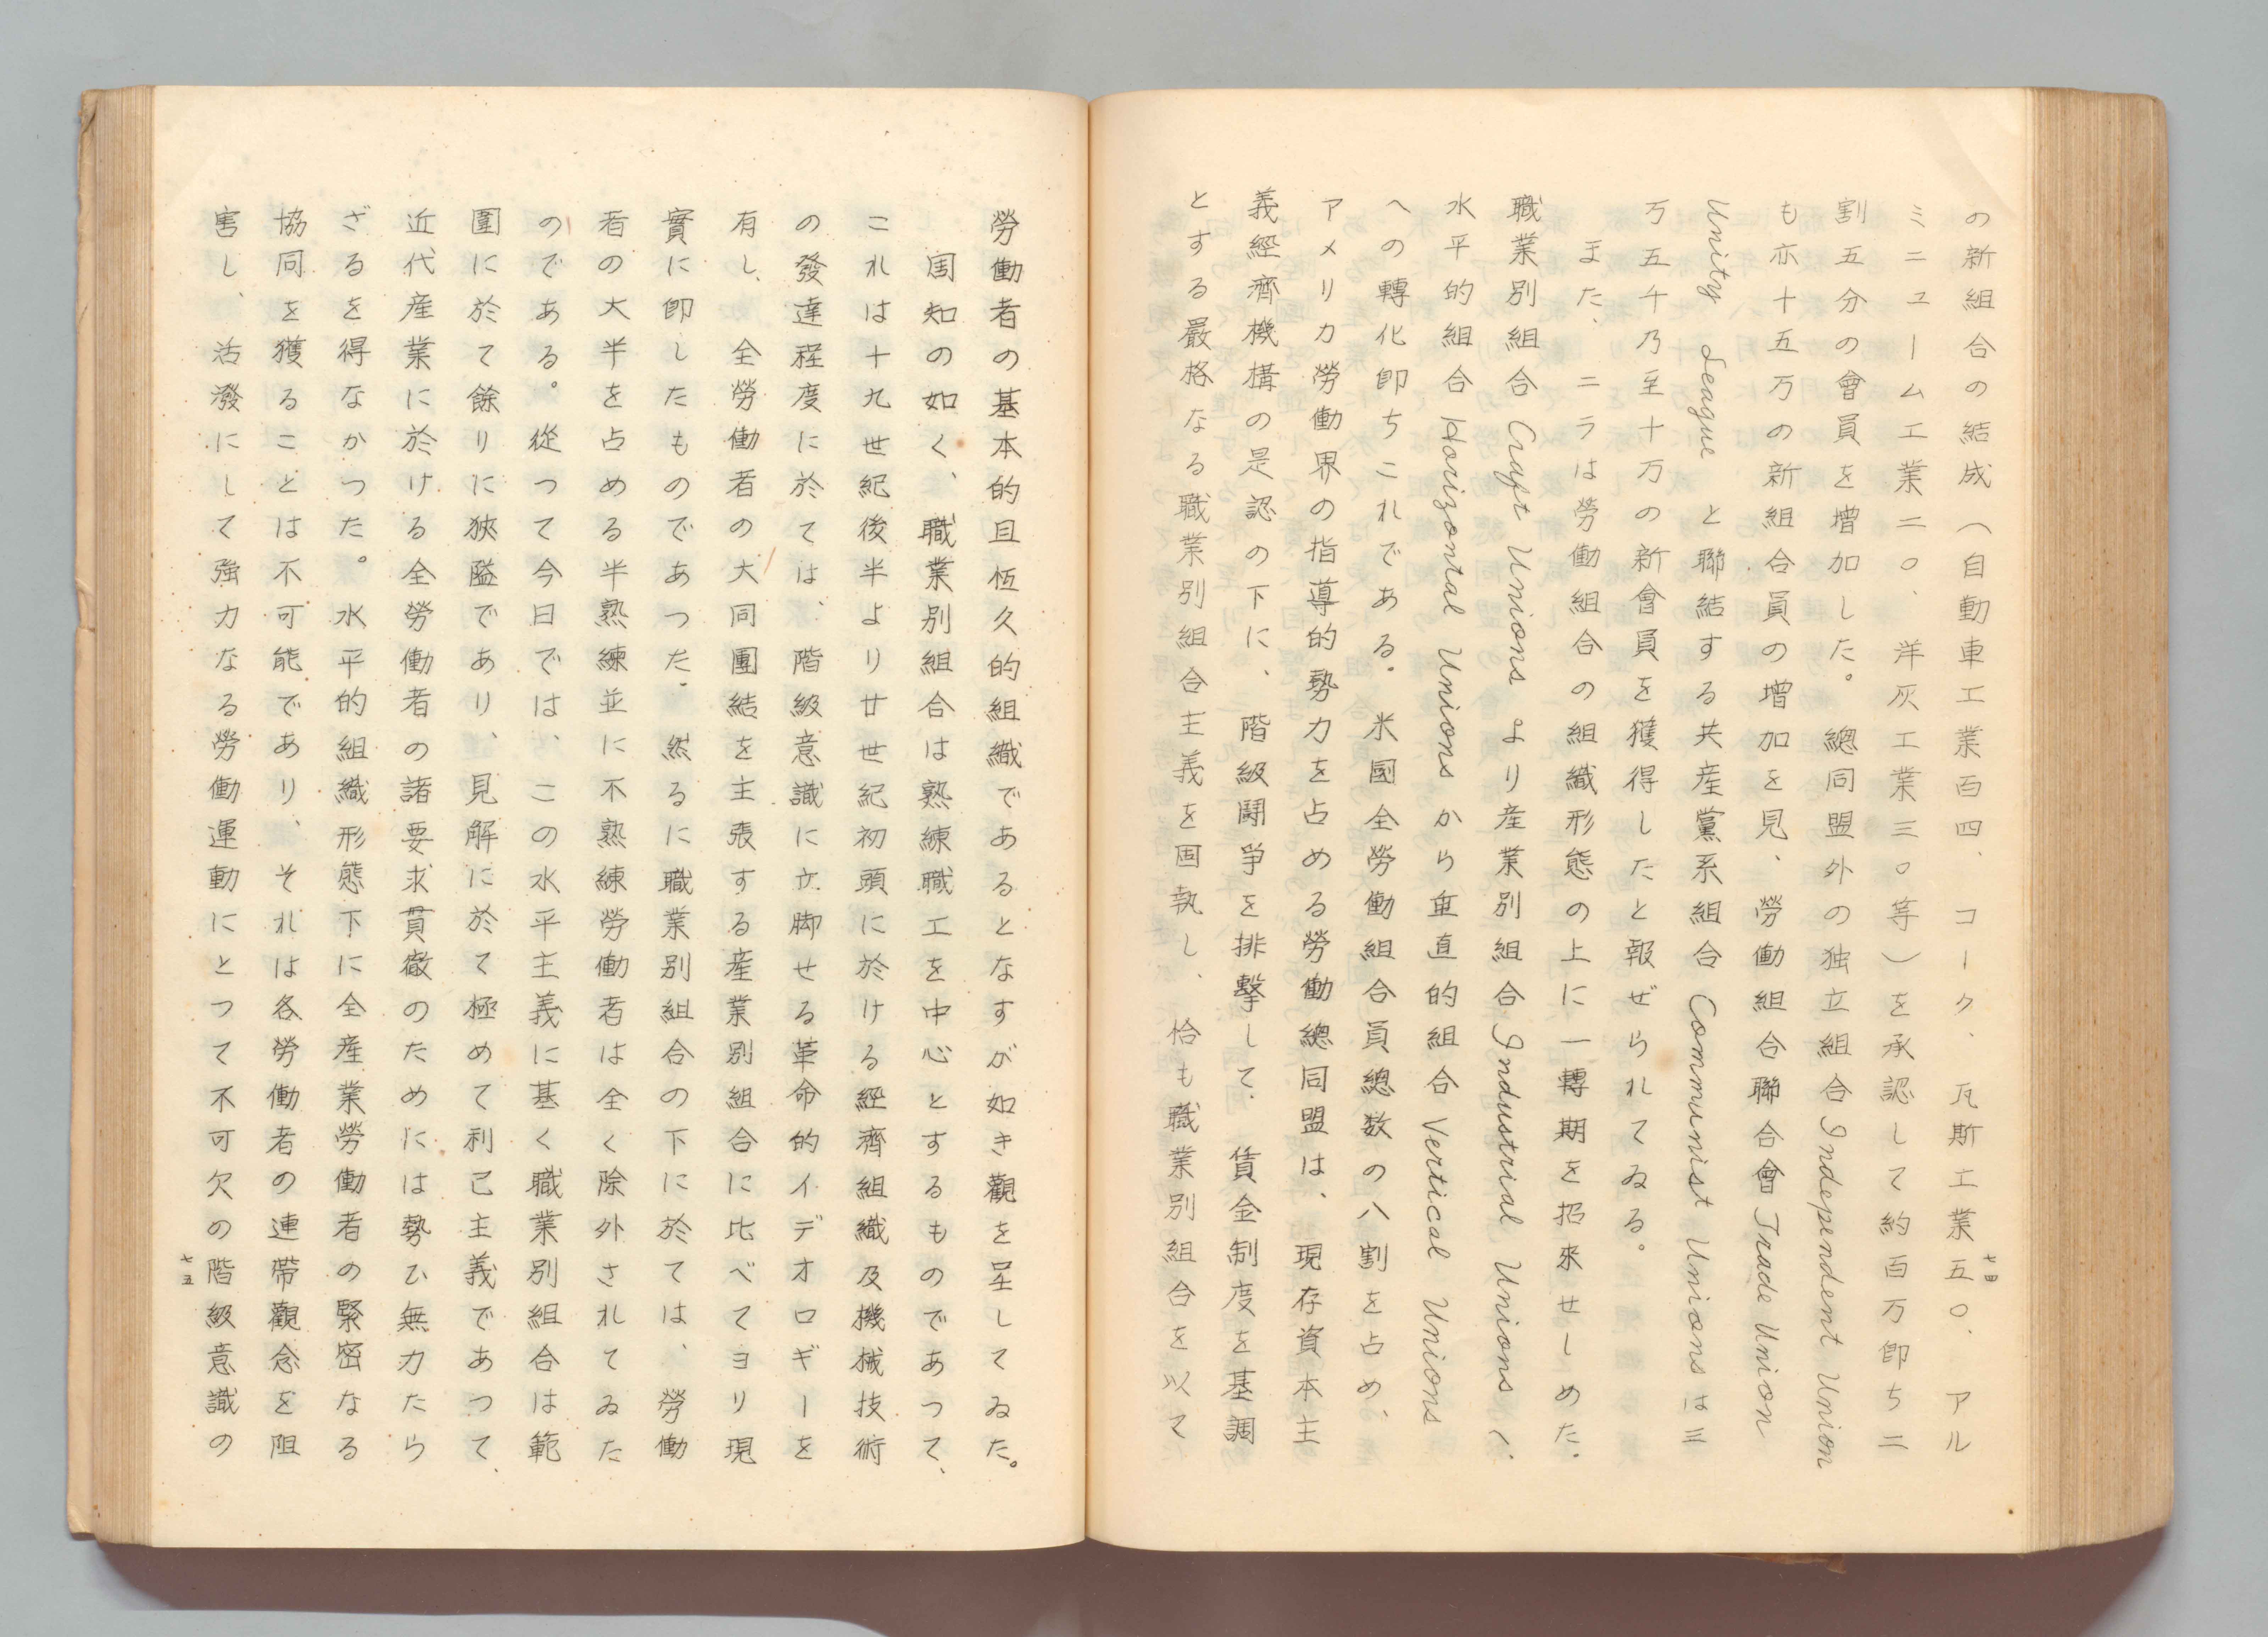 の新組合の結成（自動車工業百四、コーク、瓦斯工業五〇、アル
ミニユーム工業二〇、洋灰工業三〇等）を承認して約百万卽ち二
割五分の會員を増加した。總同盟外の独立組合 Independent Union
も亦十五万の新組合員の増加を見、勞働組合聯合會 Trade Union
Unity League と聯結する共産黨系組合 Communist Unions は三
万五千乃至十万の新會員を獲得したと報ぜられてゐる。
また、ニラは勞働組合の組織形態の上に一轉期を招來せしめた。
職業別組合 Craft Unions より産業別組合 Industrial Unions へ、
水平的組合 Horizontal Unions から垂直的組合 Vertical Unions
への轉化卽ちこれである。米國全勞働組合員總数の八割を占め、
アメリカ勞働界の指導的勢力を占める勞働總同盟は、現存資本主
義經濟機構の是認の下に、階級鬪爭を排擊して、賃金制度を基調
とする嚴格なる職業別組合主義を固執し、恰も職業別組合を以て
七四
勞働者の基本的且恆久的組織であるとなすが如き觀を呈してゐた。
周知の如く、職業別組合は熟練職工を中心とするものであつて、
これは十九世紀後半より廿世紀初頭に於ける經濟組織及機械技術
の發達程度に於ては、階級意識に立脚せる革命的イデオロギーを
有し、全勞働者の大同團結を主張する産業別組合に比べてヨリ現
實に卽したものであつた。然るに職業別組合の下に於ては、勞働
者の大半を占める半熟練並に不熟練勞働者は全く除外されてゐた
のである。從つて今日では、この水平主義に基く職業別組合は範
圍に於て餘りに狹隘であり、見解に於て極めて利己主義であつて、
近代産業に於ける全勞働者の諸要求貫徹のためには勢ひ無力たら
ざるを得なかつた。水平的組織形態下に全産業勞働者の緊密なる
協同を獲ることは不可能であり、それは各勞働者の連帶觀念を阻
害し、活潑にして強力なる勞働運動にとつて不可欠の階級意識の
七五